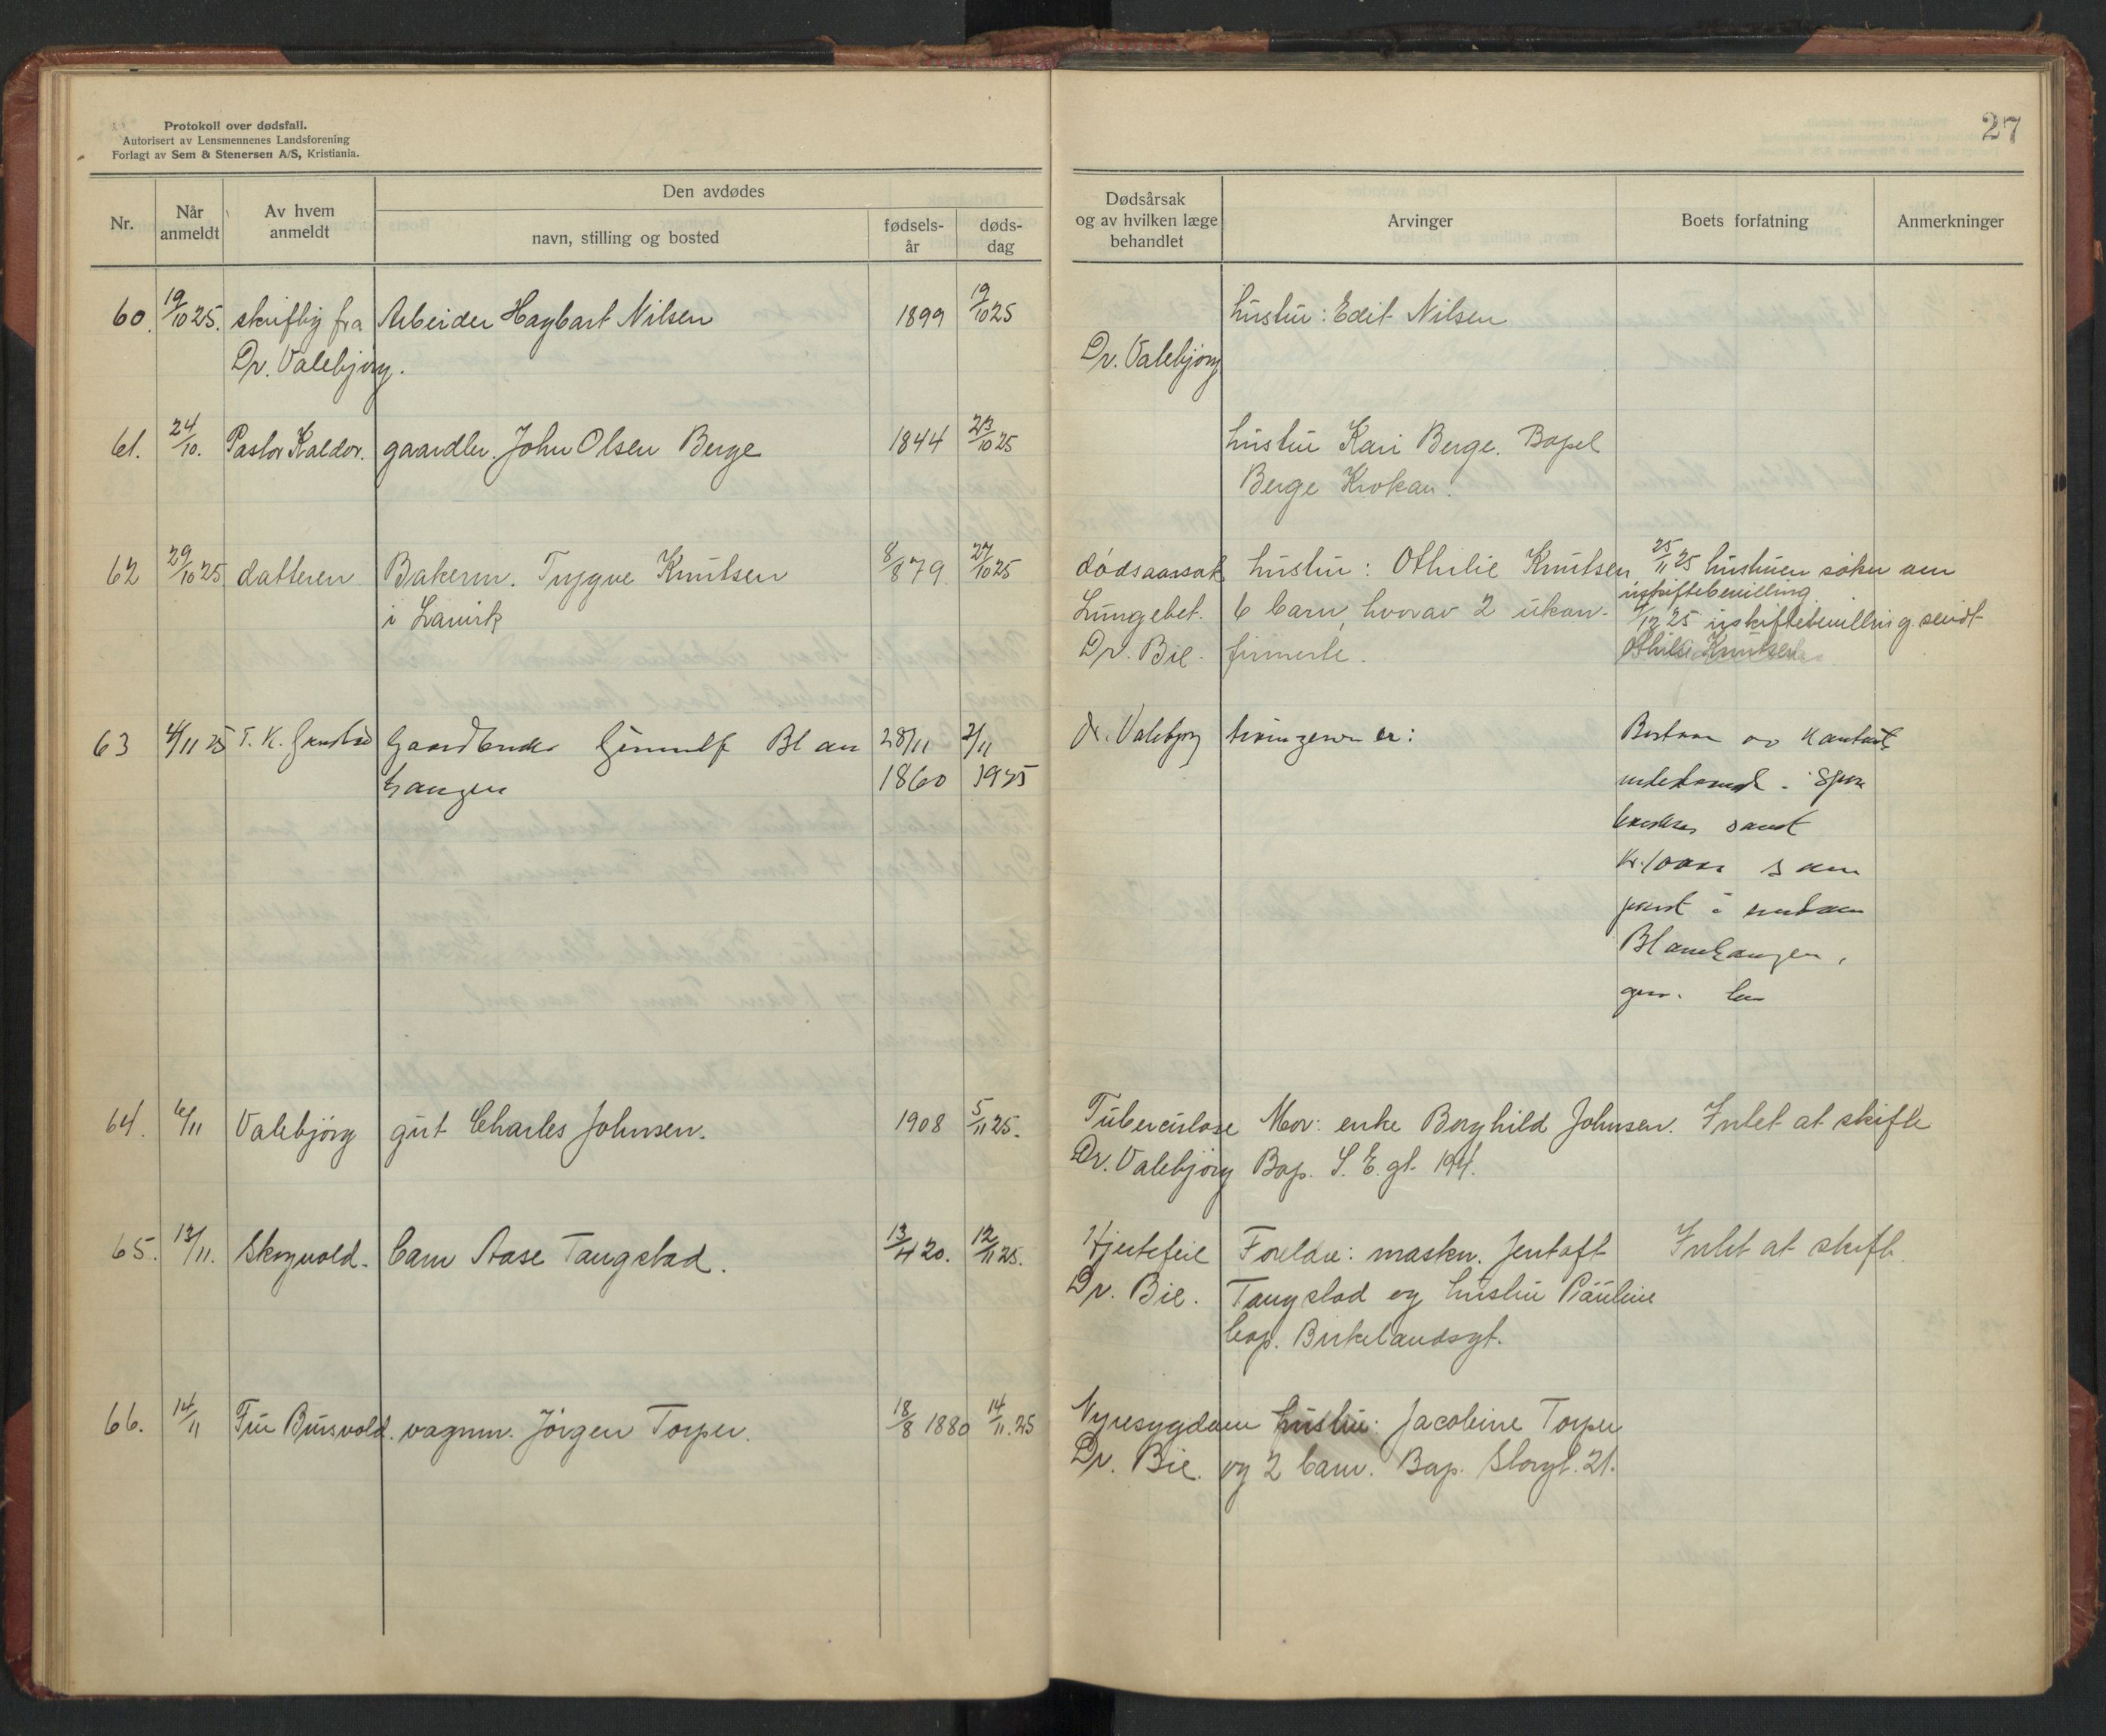 Protokoll over dødsfall.
Autorisert av Lensmennenes Landsforening
Forlagt av Sem & Stenersen A/S, Kristiania.
27
Nr.
Når anmeldt
Av hvem anmeldt
Den avdødes
navn, stilling og bosted
fødsels-år
døds-dag
Dødsårsak og av hvilken læge behandlet
Arvinger
Boets forfatning
Anmerkninger
60. 19/10 25. skriftlig fra Arbeider Hagbart Nilsen 1899 19/10 25 hustru: Edit Nilsen
Dr. Valebjørg. Dr. Valebjørg
61. 24/10. Pastor Kaldor. gaardbr. John Olsen Berge 1844 23/10 25 hustru Kari Berge. Bopel
Berge Krokan.
62 29/10 25 datteren Bakerm. Trygve Knutsen 8/8 79 27/10 25 dødsaarsak hustru: Othilie Knutsen 25/11 25 hustruen søker om
uskiftebevilling.
i Larvik Lungebet. 6 barn, hvorav 2 ukon- /12 25 uskiftebevilling sendt
Dr. Bie. firmerte. Othilie Knutsen
63 4/11 25 T. K. Gaardbruker Blan 28/11 2/11 Dr. Valebjørg er:
hangen 1860 1925
Blanhangen,
64. 6/11 Valebjørg gut Charles Johnsen. 1908 5/11 25. Tuberculose Mor: enke Borghild Johnsen. Intet at skifte
Dr. Valebjørg Bop. S. E. gt. 194.
65. 13/11. Skogvold. barn Aase Tangstad. 13/4 20. 12/11 25. Hjertefeil Foreldre: maskn. Jentoft Intet at skifte.
Dr. Bie. Tangstad og hustru Pauline
bop. Birkelandsgt.
66. 14/11 Fru Bursvold. vognm. Jørgen Torper. 18/8 1880 14/11.25 Nyresygdom hustru: Jacobine Torper
Dr. Bie. og 2 barn. Bop. Storgt. 21.